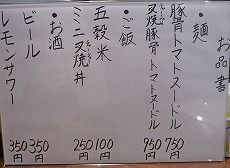 お品書
・麺
豚骨トマトヌードル 750円
叉焼豚骨トマトヌードル 950円
・ご飯
五穀米 100円
ミニ叉焼丼 250円
・お酒
ビール 350円
レモンサワー 350円